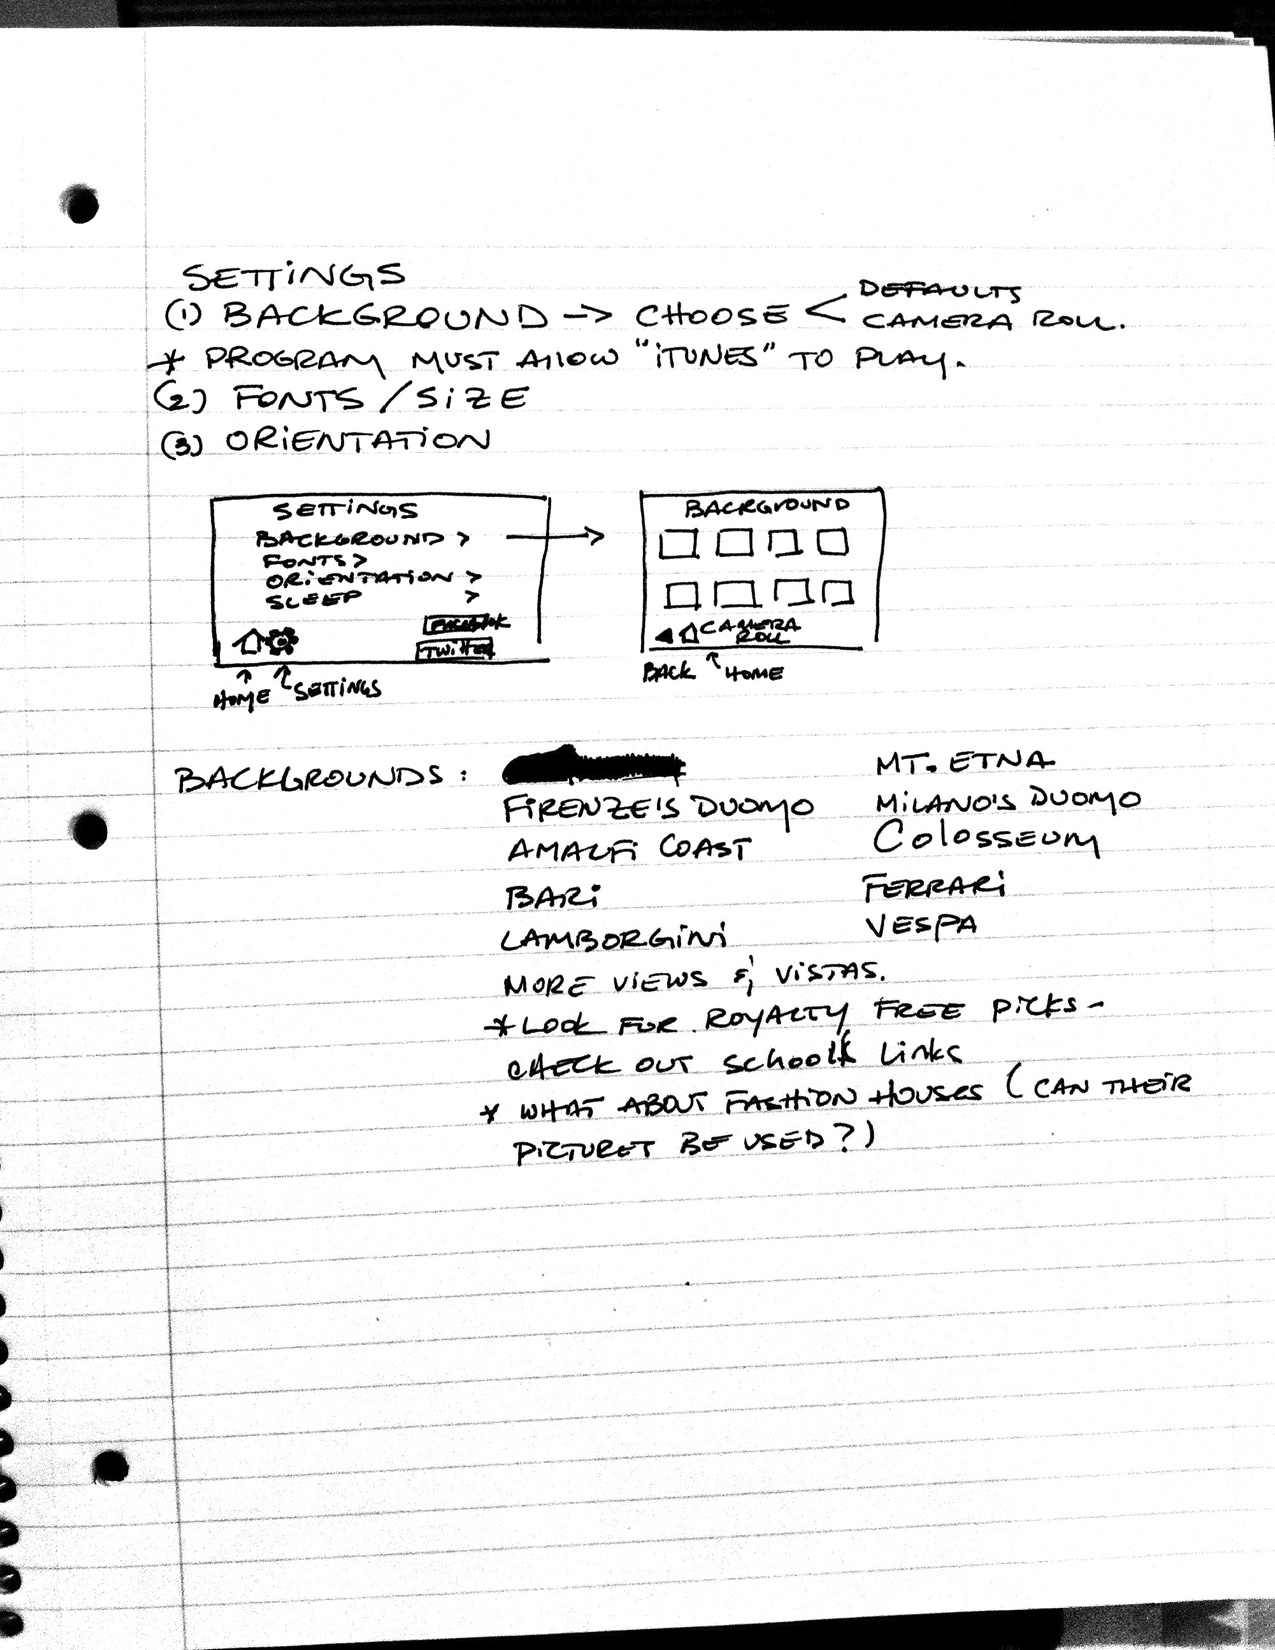 SETTINGS
(1) BACKGROUND → CHOOSE < DEFAULTS
CAMERA ROLL.
* PROGRAM MUST ALLOW "iTUNES" TO PLAY.
(2) FONTS / SIZE
(3) ORIENTATION
SETTINGS
BACKGROUND >
FONTS >
ORIENTATION >
SLEEP >
FACEBOOK
TWITTER
HOME
SETTINGS
BACKGROUND
CAMERA
ROLL
BACK
HOME
BACKGROUNDS:
MT. ETNA
FIRENZE'S DUOMO
MILANO'S DUOMO
AMALFI COAST
COLOSSEUM
BARI
FERRARI
LAMBORGINI
VESPA
MORE VIEWS & VISTAS.
* LOOK FOR ROYALTY FREE PICKS -
CHECK OUT SCHOOL'S LINKS
* WHAT ABOUT FASHION HOUSES (CAN THEIR
PICTURES BE USED?)